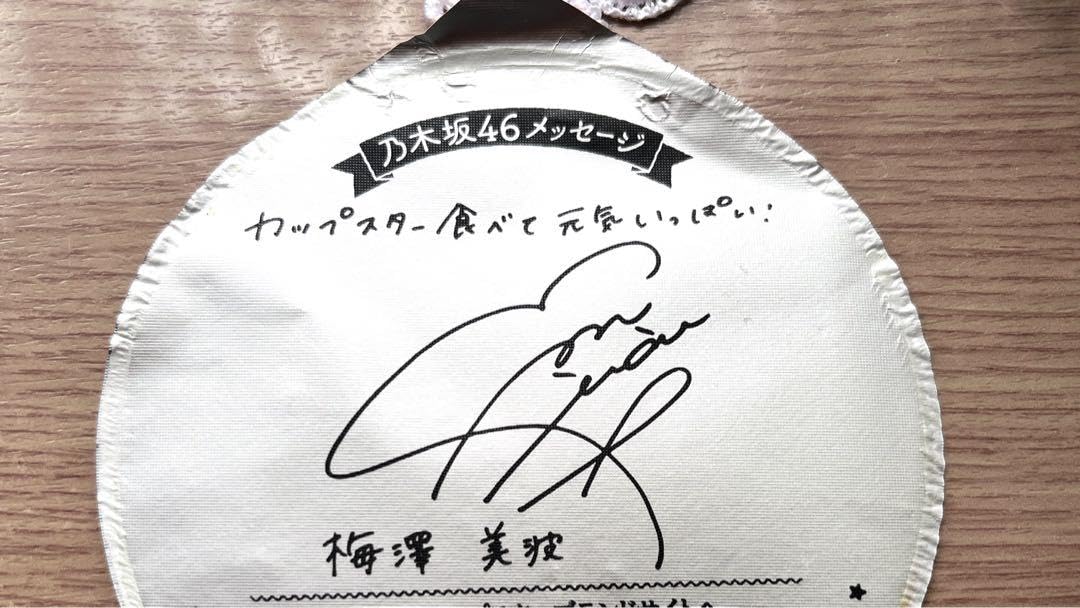 乃木坂46メッセージ
カップスター食べて元気いっぱい!
梅澤 美波